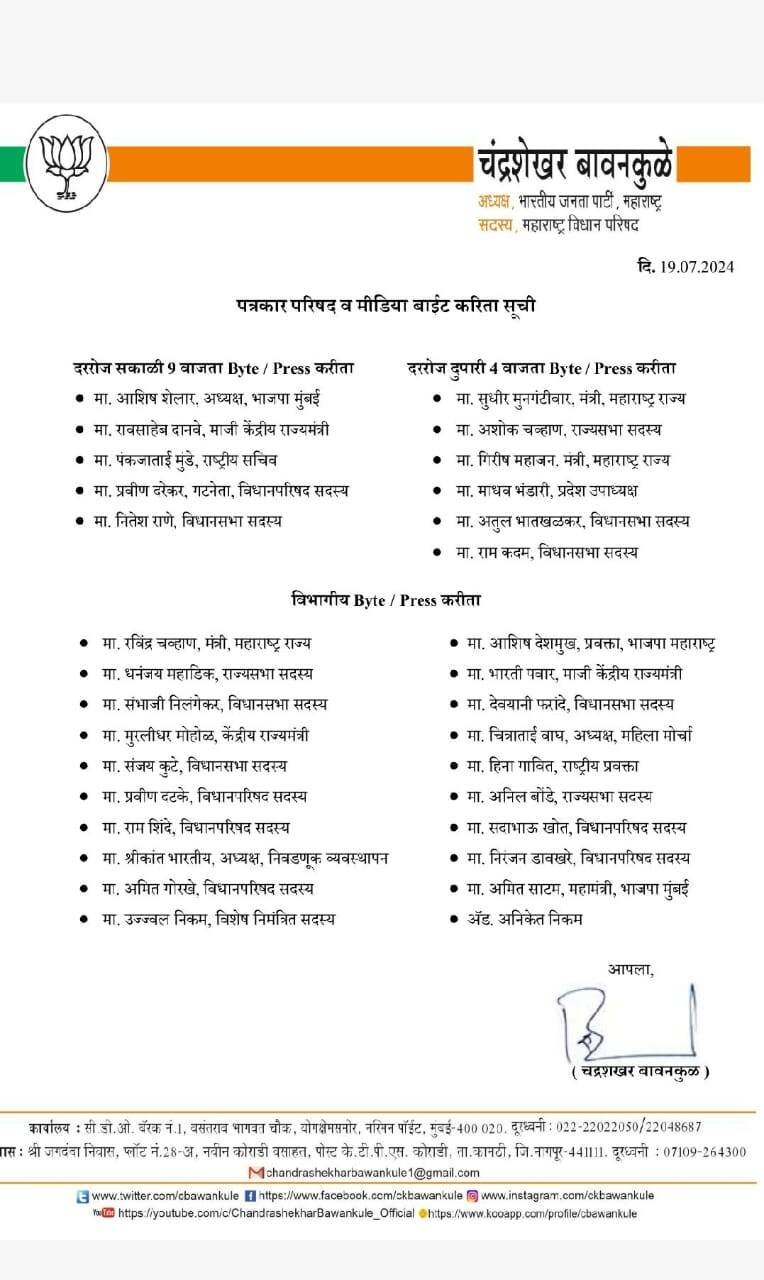 चंद्रशेखर बावनकुळे
अध्यक्ष, भारतीय जनता पार्टी, महाराष्ट्र
सदस्य, महाराष्ट्र विधान परिषद
दि. 19.07.2024
पत्रकार परिषद व मीडिया बाईट करिता सूची
दररोज सकाळी 9 वाजता Byte / Press करीता
मा. आशिष शेलार, अध्यक्ष, भाजपा मुंबई
मा. रावसाहेब दानवे, माजी केंद्रीय राज्यमंत्री
मा. पंकजाताई मुंडे, राष्ट्रीय सचिव
मा. प्रवीण दरेकर, गटनेता, विधानपरिषद सदस्य
मा. नितेश राणे, विधानसभा सदस्य
दररोज दुपारी 4 वाजता Byte / Press करीता
मा. सुधीर मुनगंटीवार, मंत्री, महाराष्ट्र राज्य
मा. अशोक चव्हाण, राज्यसभा सदस्य
मा. गिरीष महाजन. मंत्री, महाराष्ट्र राज्य
मा. माधव भंडारी, प्रदेश उपाध्यक्ष
मा. अतुल भातखळकर, विधानसभा सदस्य
मा. राम कदम, विधानसभा सदस्य
विभागीय Byte / Press करीता
मा. रविंद्र चव्हाण, मंत्री, महाराष्ट्र राज्य
मा. धनंजय महाडिक, राज्यसभा सदस्य
मा. संभाजी निलंगेकर, विधानसभा सदस्य
मा. मुरलीधर मोहोळ, केंद्रीय राज्यमंत्री
मा. संजय कुटे, विधानसभा सदस्य
मा. प्रवीण दटके, विधानपरिषद सदस्य
मा. राम शिंदे, विधानपरिषद सदस्य
मा. श्रीकांत भारतीय, अध्यक्ष, निवडणूक व्यवस्थापन
मा. अमित गोरखे, विधानपरिषद सदस्य
मा. उज्ज्वल निकम, विशेष निमंत्रित सदस्य
मा. आशिष देशमुख, प्रवक्ता, भाजपा महाराष्ट्र
मा. भारती पवार, माजी केंद्रीय राज्यमंत्री
मा. देवयानी फरांदे, विधानसभा सदस्य
मा. चित्राताई वाघ, अध्यक्ष, महिला मोर्चा
मा. हिना गावित, राष्ट्रीय प्रवक्ता
मा. अनिल बोंडे, राज्यसभा सदस्य
मा. सदाभाऊ खोत, विधानपरिषद सदस्य
मा. निरंजन डावखरे, विधानपरिषद सदस्य
मा. अमित साटम, महामंत्री, भाजपा मुंबई
ॲड. अनिकेत निकम
आपला,
( चंद्रशेखर बावनकुळे )
कार्यालय : सी.डी.ओ. बॅरक नं.1, वसंतराव भागवत चौक, योगक्षेमसमोर, नरिमन पॉईंट, मुंबई-400 020. दूरध्वनी : 022-22022050/22048687
ास : श्री जगदंबा निवास, प्लॉट नं.28-अ, नवीन कोराडी वसाहत, पोस्ट के.टी.पी.एस. कोराडी, ता.कामठी, जि.नागपूर-441111. दूरध्वनी : 07109-264300
chandrashekharbawankule1@gmail.com
www.twitter.com/cbawankule https://www.facebook.com/ckbawankule www.instagram.com/ckbawankule
YouTube https://youtube.com/c/ChandrashekharBawankule_Official https://www.kooapp.com/profile/cbawankule